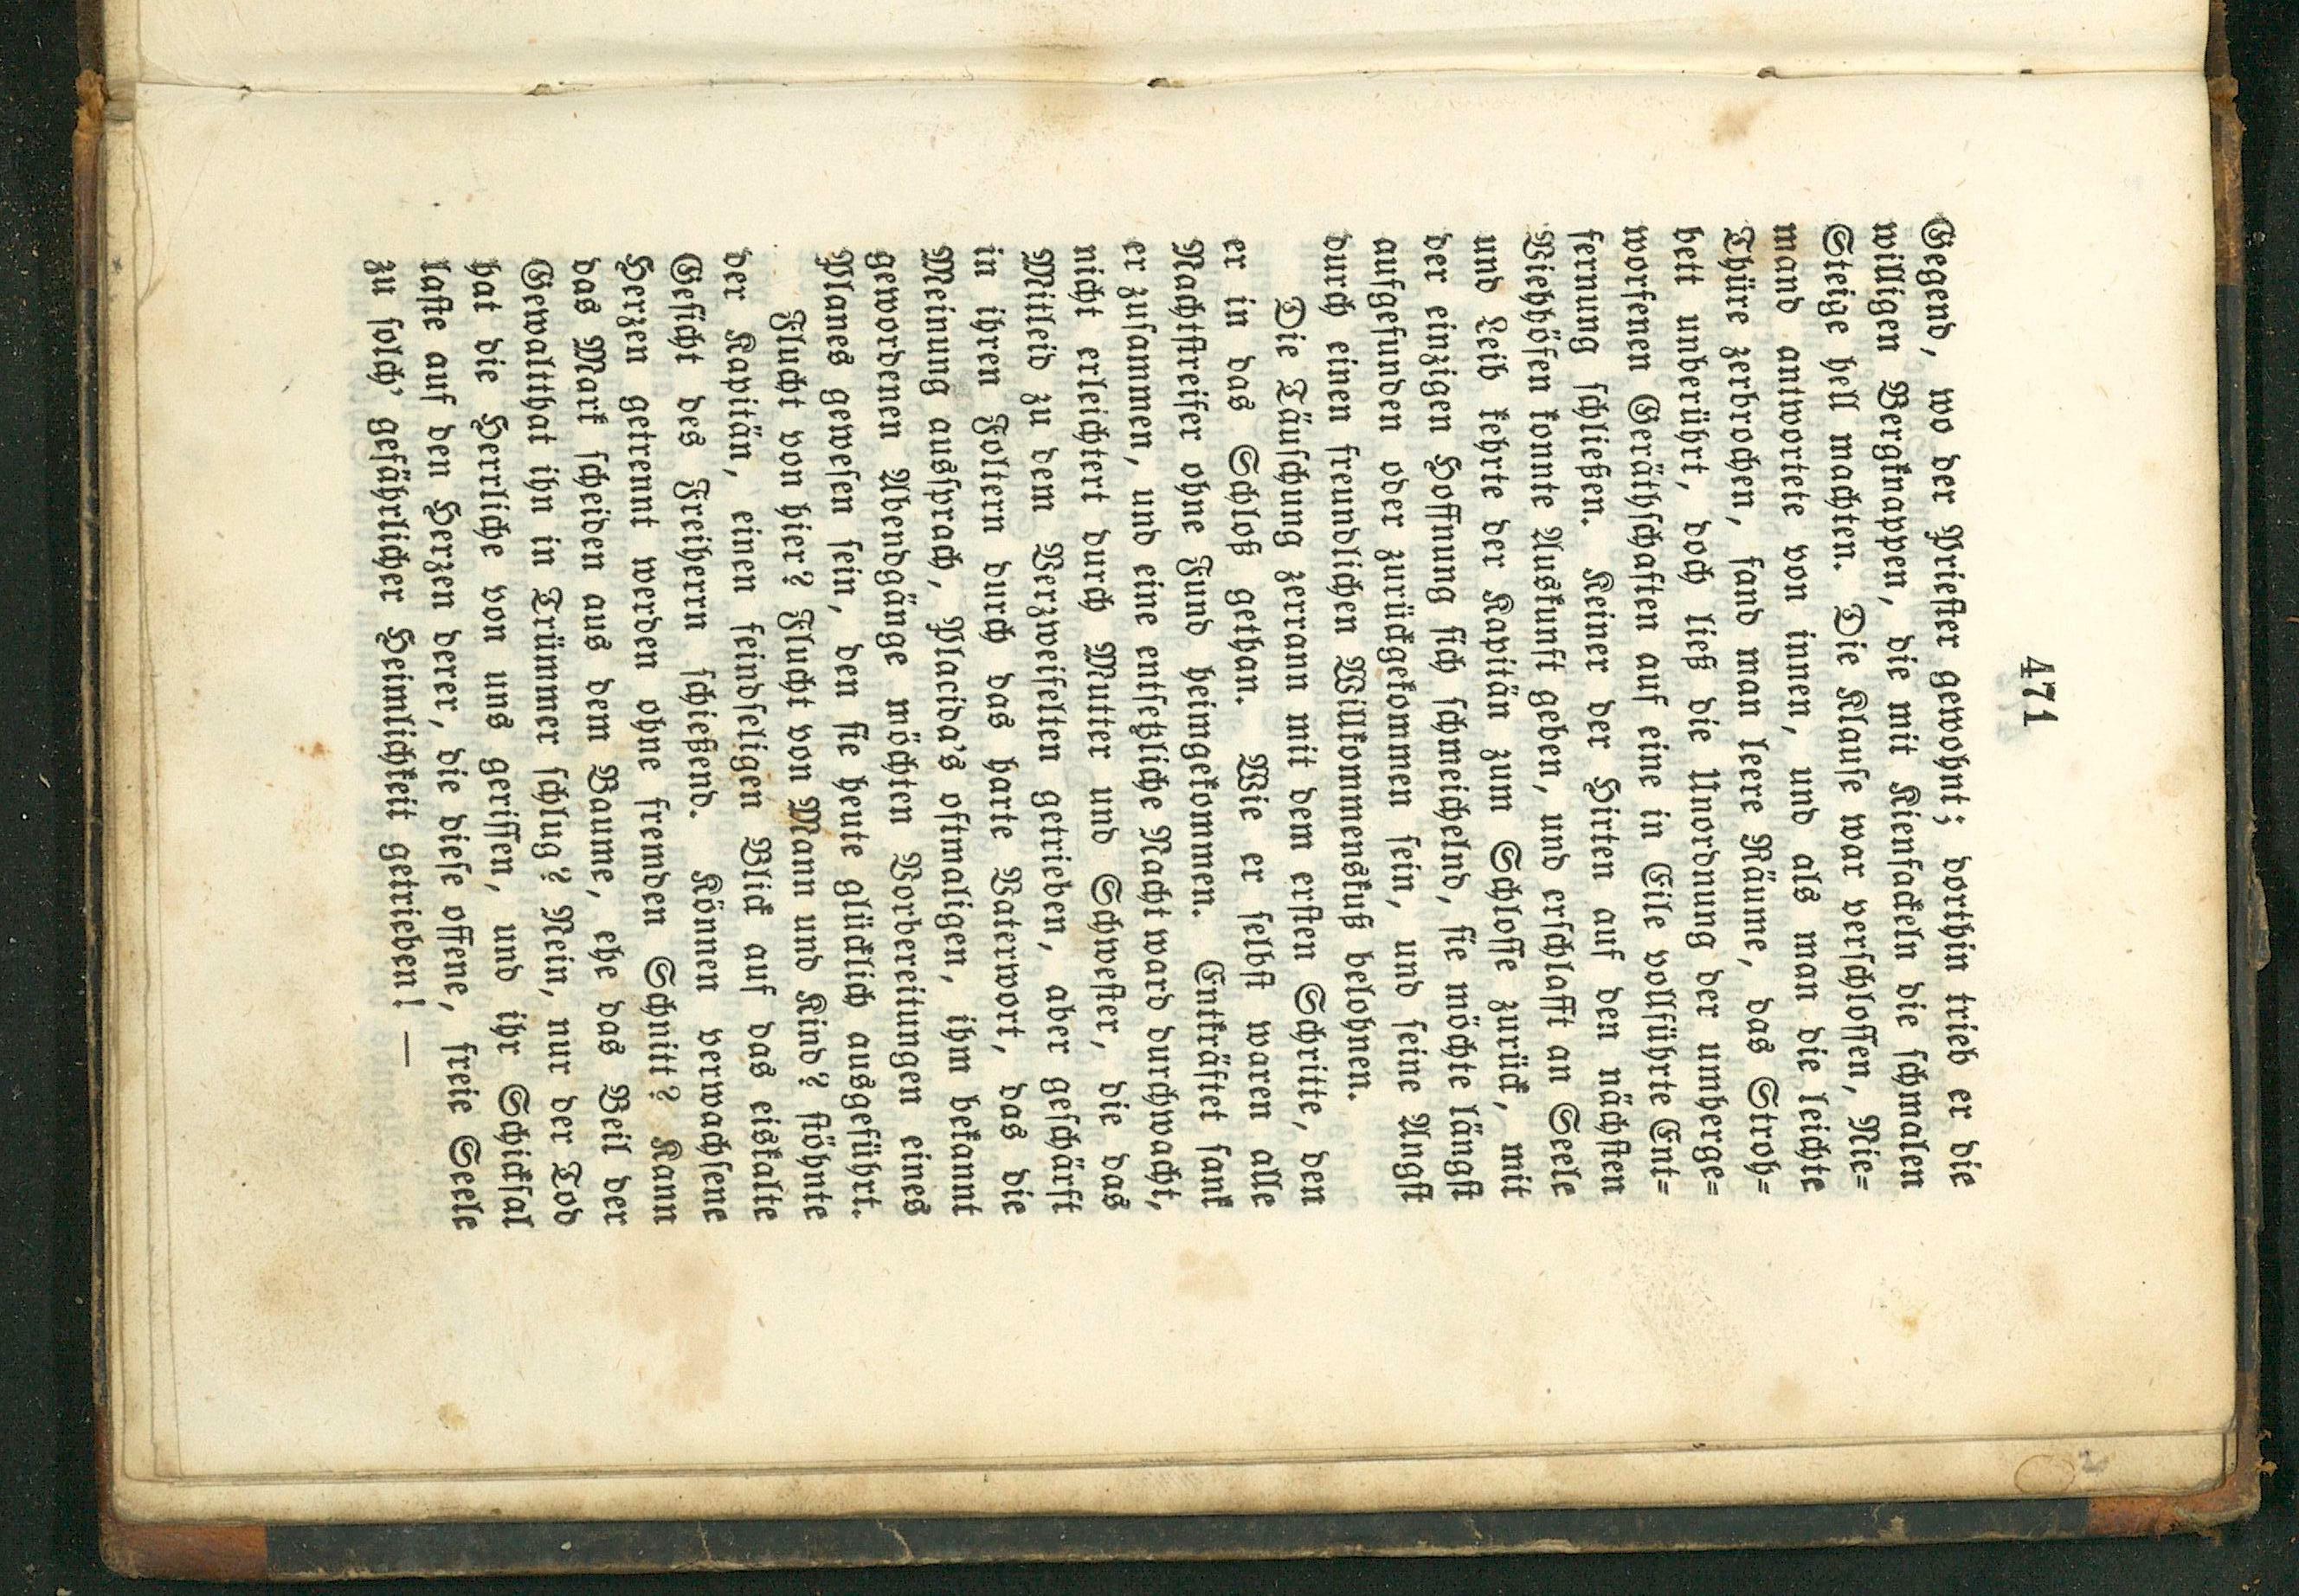 471
Gegend, wo der Priester gewohnt; dorthin trieb er die
willigen Bergknappen, die mit Kienfackeln die schmalen
Steige hell machten. Die Klause war verschlossen, Nie=
mand antwortete von innen, und als man die leichte
Thüre zerbrochen, fand man leere Räume, das Stroh=
bett unberührt, doch ließ die Unordnung der umherge=
worfenen Geräthschaften auf eine in Eile vollführte Ent=
fernung schließen. Keiner der Hirten auf den nächsten
Viehhöfen konnte Auskunft geben, und erschlafft an Seele
und Leib kehrte der Kapitän zum Schlosse zurück, mit
der einzigen Hoffnung sich schmeichelnd, sie möchte längst
aufgefunden oder zurückgekommen sein, und seine Angst
durch einen freundlichen Willkommenskuß belohnen.
Die Täuschung zerrann mit dem ersten Schritte, den
er in das Schloß gethan. Wie er selbst waren alle
Nachtstreifer ohne Fund heimgekommen. Entkräftet sank
er zusammen, und eine entsetzliche Nacht ward durchwacht,
nicht erleichtert durch Mutter und Schwester, die das
Mitleid zu dem Verzweifelten getrieben, aber geschärft
in ihren Foltern durch das harte Vaterwort, das die
Meinung aussprach, Placida's oftmaligen, ihm bekannt
gewordenen Abendgänge möchten Vorbereitungen eines
Planes gewesen sein, den sie heute glücklich ausgeführt.
Flucht von hier? Flucht von Mann und Kind? stöhnte
der Kapitän, einen feindseligen Blick auf das eiskalte
Gesicht des Freiherrn schießend. Können verwachsene
Herzen getrennt werden ohne fremden Schnitt? Kann
das Mark scheiden aus dem Baume, ehe das Beil der
Gewaltthat ihn in Trümmer schlug? Nein, nur der Tod
hat die Herrliche von uns gerissen, und ihr Schicksal
laste auf den Herzen derer, die diese offene, freie Seele
zu solch' gefährlicher Heimlichkeit getrieben! —